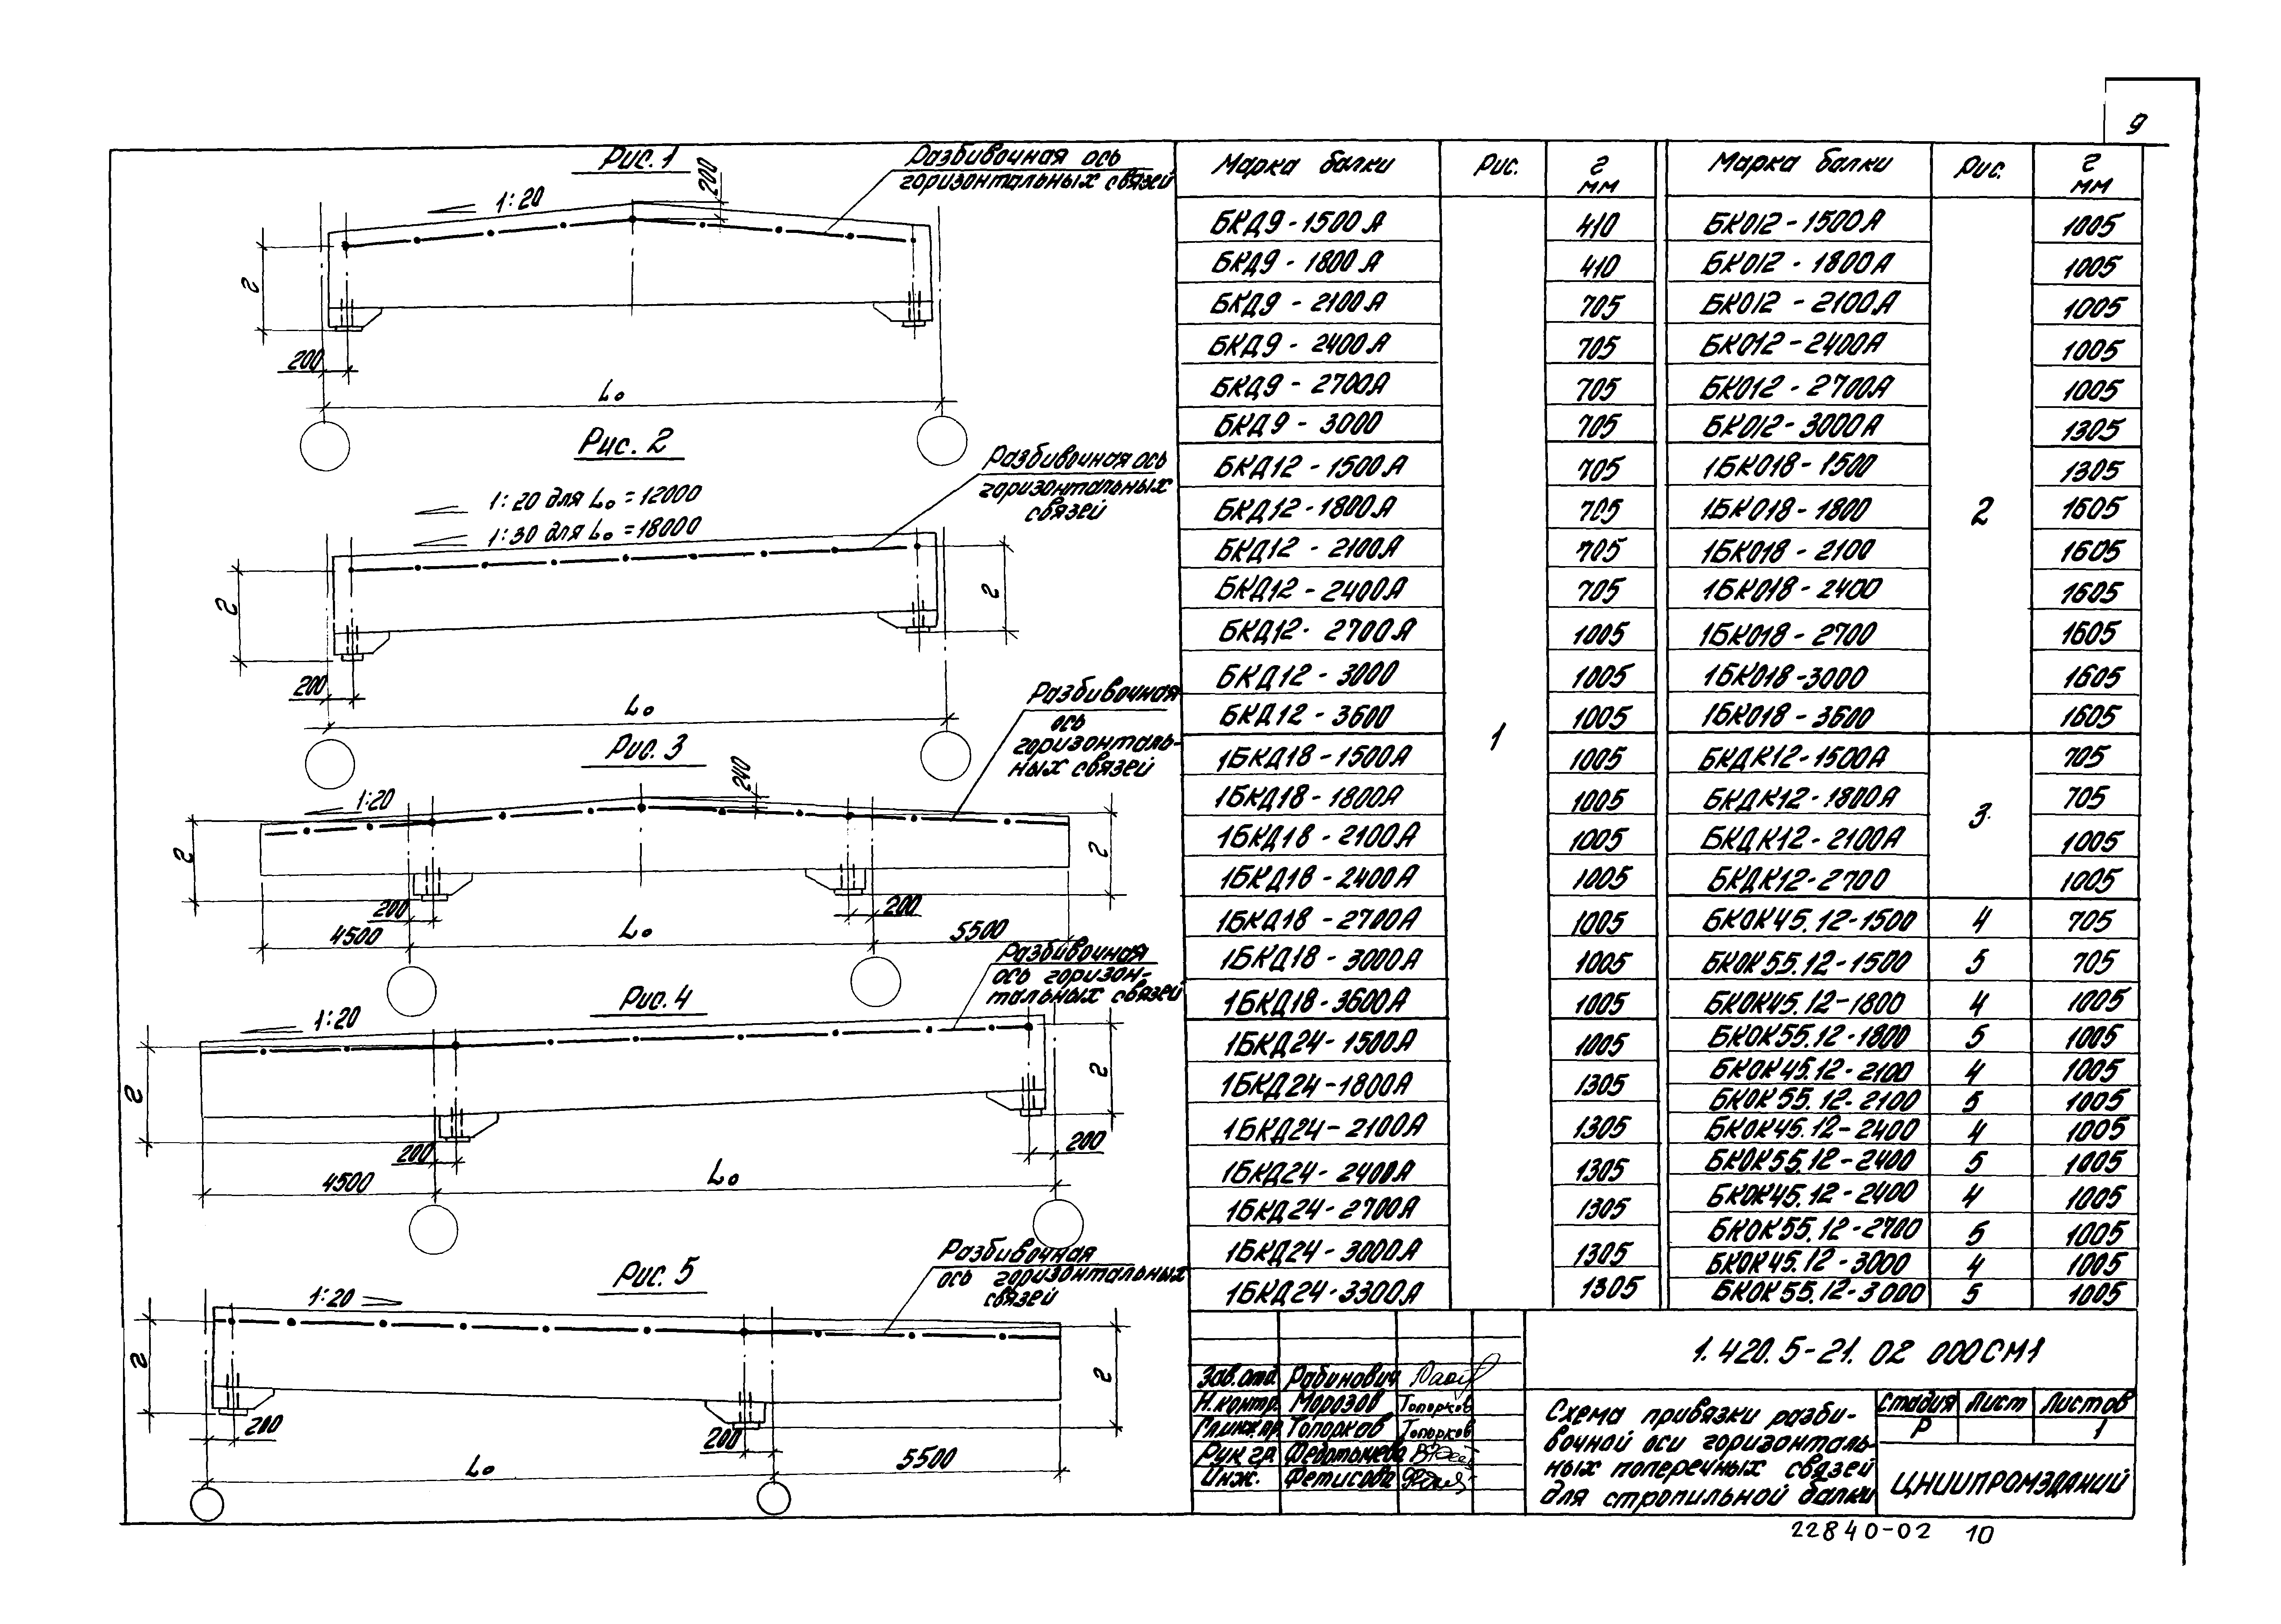 9
Рис. 1
Разбивочная ось
горизонтальных связей
1:20
200
г
200
L₀
Рис. 2
Разбивочная ось
горизонтальных
связей
1:20 для L₀ = 12000
1:30 для L₀ = 18000
г
г
200
L₀
Рис. 3
Разбивочная
ось
горизонталь-
ных связей
1:20
240
г
г
200
200
4500
L₀
5500
Рис. 4
Разбивочная
ось горизон-
тальных связей
1:20
г
г
200
200
4500
L₀
Рис. 5
Разбивочная
ось горизонтальных
связей
1:20
г
г
200
200
L₀
5500
Марка балки Рис. г мм
БКД9-1500А 1 410
БКД9-1800А 410
БКД9-2100А 705
БКД9-2400А 705
БКД9-2700А 705
БКД9-3000 705
БКД12-1500А 705
БКД12-1800А 705
БКД12-2100А 705
БКД12-2400А 705
БКД12-2700А 1005
БКД12-3000 1005
БКД12-3600 1005
1БКД18-1500А 1005
1БКД18-1800А 1005
1БКД18-2100А 1005
1БКД18-2400А 1005
1БКД18-2700А 1005
1БКД18-3000А 1005
1БКД18-3600А 1005
1БКД24-1500А 1005
1БКД24-1800А 1305
1БКД24-2100А 1305
1БКД24-2400А 1305
1БКД24-2700А 1305
1БКД24-3000А 1305
1БКД24-3300А 1305
Марка балки Рис. г мм
БКО12-1500А 2 1005
БКО12-1800А 1005
БКО12-2100А 1005
БКО12-2400А 1005
БКО12-2700А 1005
БКО12-3000А 1305
1БКО18-1500 1305
1БКО18-1800 1605
1БКО18-2100 1605
1БКО18-2400 1605
1БКО18-2700 1605
1БКО18-3000 1605
1БКО18-3600 1605
БКДК12-1500А 3 705
БКДК12-1800А 705
БКДК12-2100А 1005
БКДК12-2700 1005
БКОК45.12-1500 4 705
БКОК55.12-1500 5 705
БКОК45.12-1800 4 1005
БКОК55.12-1800 5 1005
БКОК45.12-2100 4 1005
БКОК55.12-2100 5 1005
БКОК45.12-2400 4 1005
БКОК55.12-2400 5 1005
БКОК45.12-2400 4 1005
БКОК55.12-2700 5 1005
БКОК45.12-3000 4 1005
БКОК55.12-3000 5 1005
1.420.5-21.02 000СМ1
Зав.отд. Рабинович
Н.контр. Морозов Топорков
Гл.инж.пр. Топорков Топорков
Рук гр.
Инж. Фетисова
Схема привязки разби-
вочной оси горизонталь-
ных поперечных связей
для стропильной балки
Стадия Лист Листов
Р 1
ЦНИИПРОМЗДАНИЙ
22840-02 10